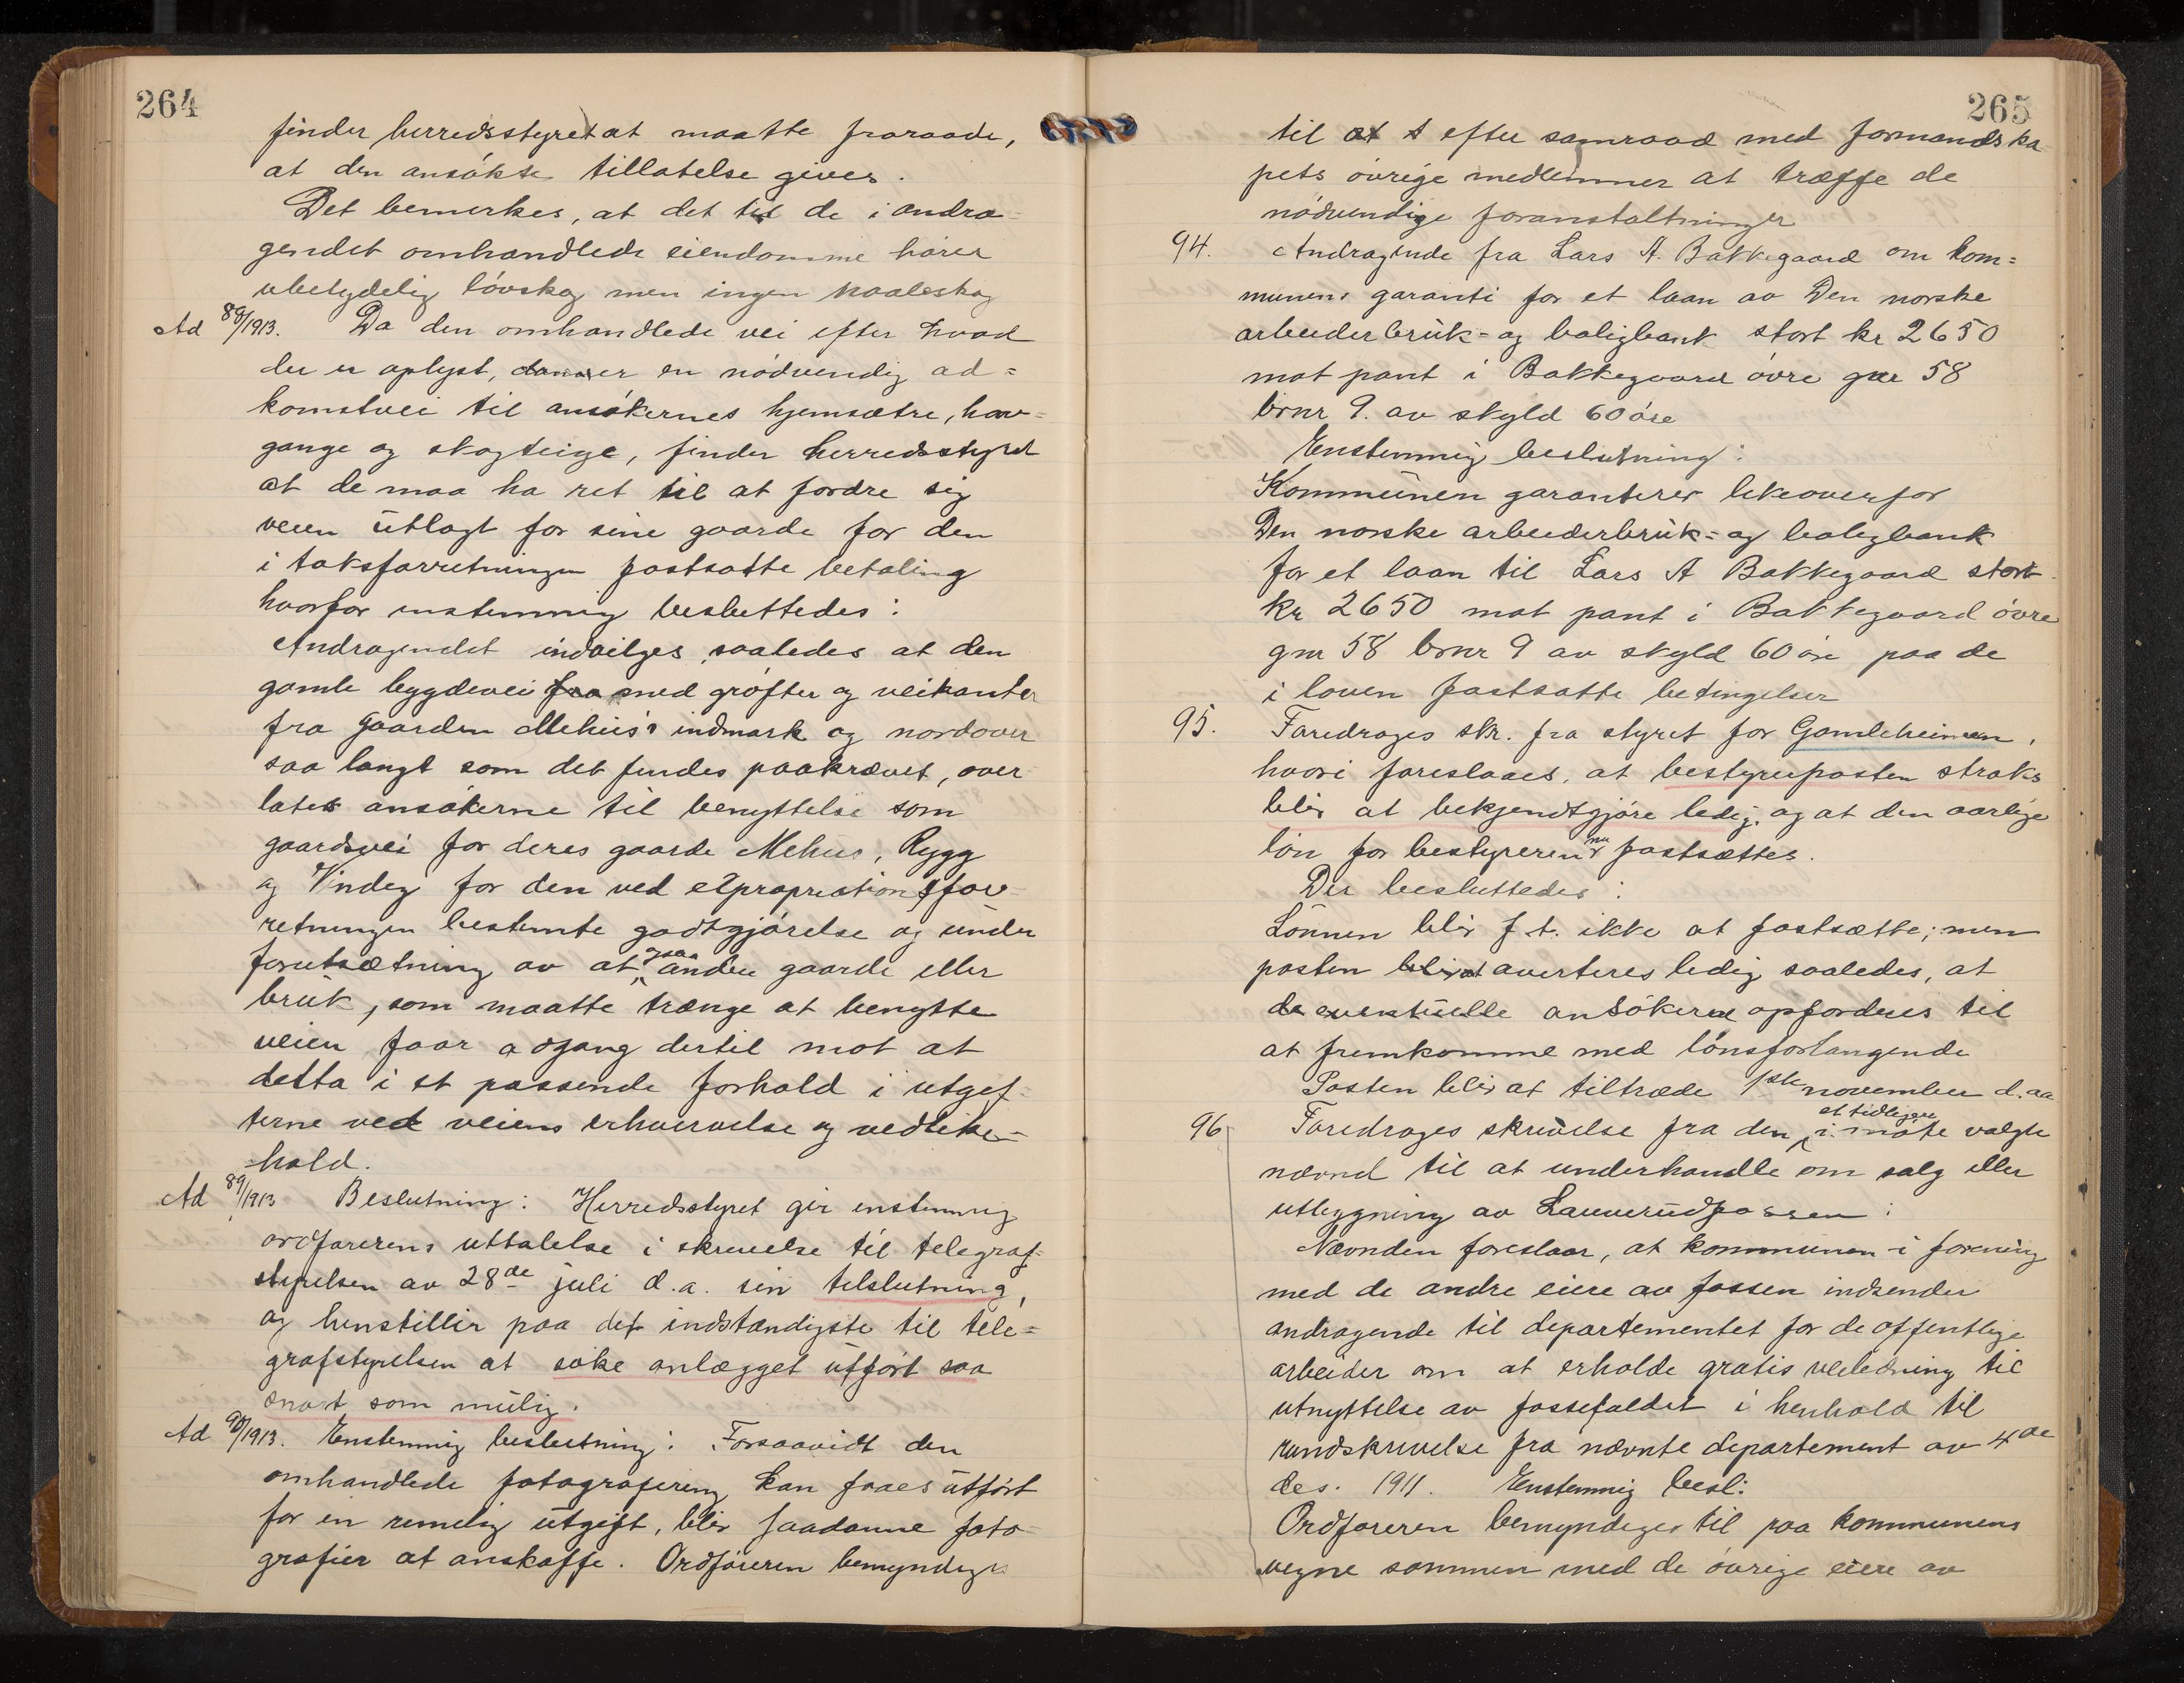 264
finder herredsstyret at maatte fraraade,
at den ansøkte tillatelse gives.
Det bemerkes, at det til de i andra-
gendet omhandlede eiendomme hører
ubetydelig løvskog men ingen naaleskog
Ad 88/1913. Da den omhandlede vei efter hvad
der er oplyst, danner en nødvendig ad=
komstvei til ansøkernes hjemsætre, hav=
gange og skogteige, finder herredsstyret
at de maa ha ret til at fordre sig
veien utlagt for sine gaarde for den
i taksforretningen fastsatte betaling
hvorfor enstemmig besluttedes:
Andragendet indvilges saaledes at den
gamle bygdevei fra med grøfter og veikanter
fra gaarden Mehus's indmark og nordover
saa langt som det findes paakrævet, over-
lates ansøkerne til benyttelse som
gaardsvei for deres gaarde Mehus, Rygg
og Vindeg for den ved expropriationsfor-
retningen bestemte godtgjørelse og under
forutsætning av at ogsaa andre gaarde eller
bruk, som maatte trænge at benytte
veien faar adgang dertil mot at
detta i et passende forhold i utgif-
terne ved veiens erhvervelse og vedlike-
hold.
Ad 89/1913 Beslutning: Herredsstyret gir enstemmig
ordførerens uttalelse i skrivelse til telegraf-
styrelsen av 28de juli d.a. sin tilslutning,
og henstiller paa det indstændigste til tele=
grafstyrelsen at søke anlægget utført saa
snart som mulig.
Ad 90/1913. Enstemmig beslutning: Forsaavidt den
omhandlede fotografering kan faaes utført
for en rimelig utgift, blir saadanne foto-
grafier at anskaffe. Ordføreren bemyndiges
265
til at efter samraad med formandska
pets øvrige medlemmer at træffe de
nødvendige foranstaltninger
94. Andragende fra Lars A. Bakkegaard om kom=
munens garanti for et laan av Den norske
arbeiderbruk- og boligbank stort kr 2650
mot pant i Bakkegaard øvre gnr 58
brnr 9. av skyld 60 øre
Enstemmig beslutning:
Kommunen garanterer likeoverfor
Den norske arbeiderbruk- og boligbank
for et laan til Lars A Bakkegaard stort
kr 2650 mot pant i Bakkegaard øvre
gnr 58 brnr 9 av skyld 60 øre paa de
i loven fastsatte betingelser
95. Foredrages skr. fra styret for Gamleheimen,
hvori foreslaaes, at bestyrerposten straks
blir at bekjendtgjøre ledig, og at den aarlige
løn for bestyreren nu fastsættes.
Der besluttedes:
Lønnen blir f.t. ikke at fastsætte; men
posten blir at averteres ledig saaledes, at
de eventuelle ansøkere opfordres til
at fremkomme med lønsforlangende
Posten blir at tiltræde 1ste november d.aa
96 Foredrages skrivelse fra den i et tidligere møte valgte
nævnd til at underhandle om salg eller
utbygning av Lauverudfossen:
Nævnden foreslaar, at kommunen i forening
med de andre eiere av fossen indsender
andragende til departementet for de offentlige
arbeider om at erholde gratis veiledning til
utnyttelse av fossefaldet i henhold til
rundskrivelse fra nævnte departement av 4de
des. 1911. Enstemmig besl:
Ordføreren bemyndiges til paa kommunens
vegne sammen med de øvrige eiere av